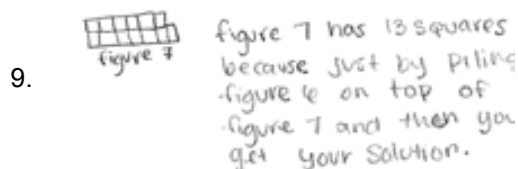 9.
figure 7
figure 7 has 13 squares
because just by piling
figure 6 on top of
figure 7 and then you
get your solution.